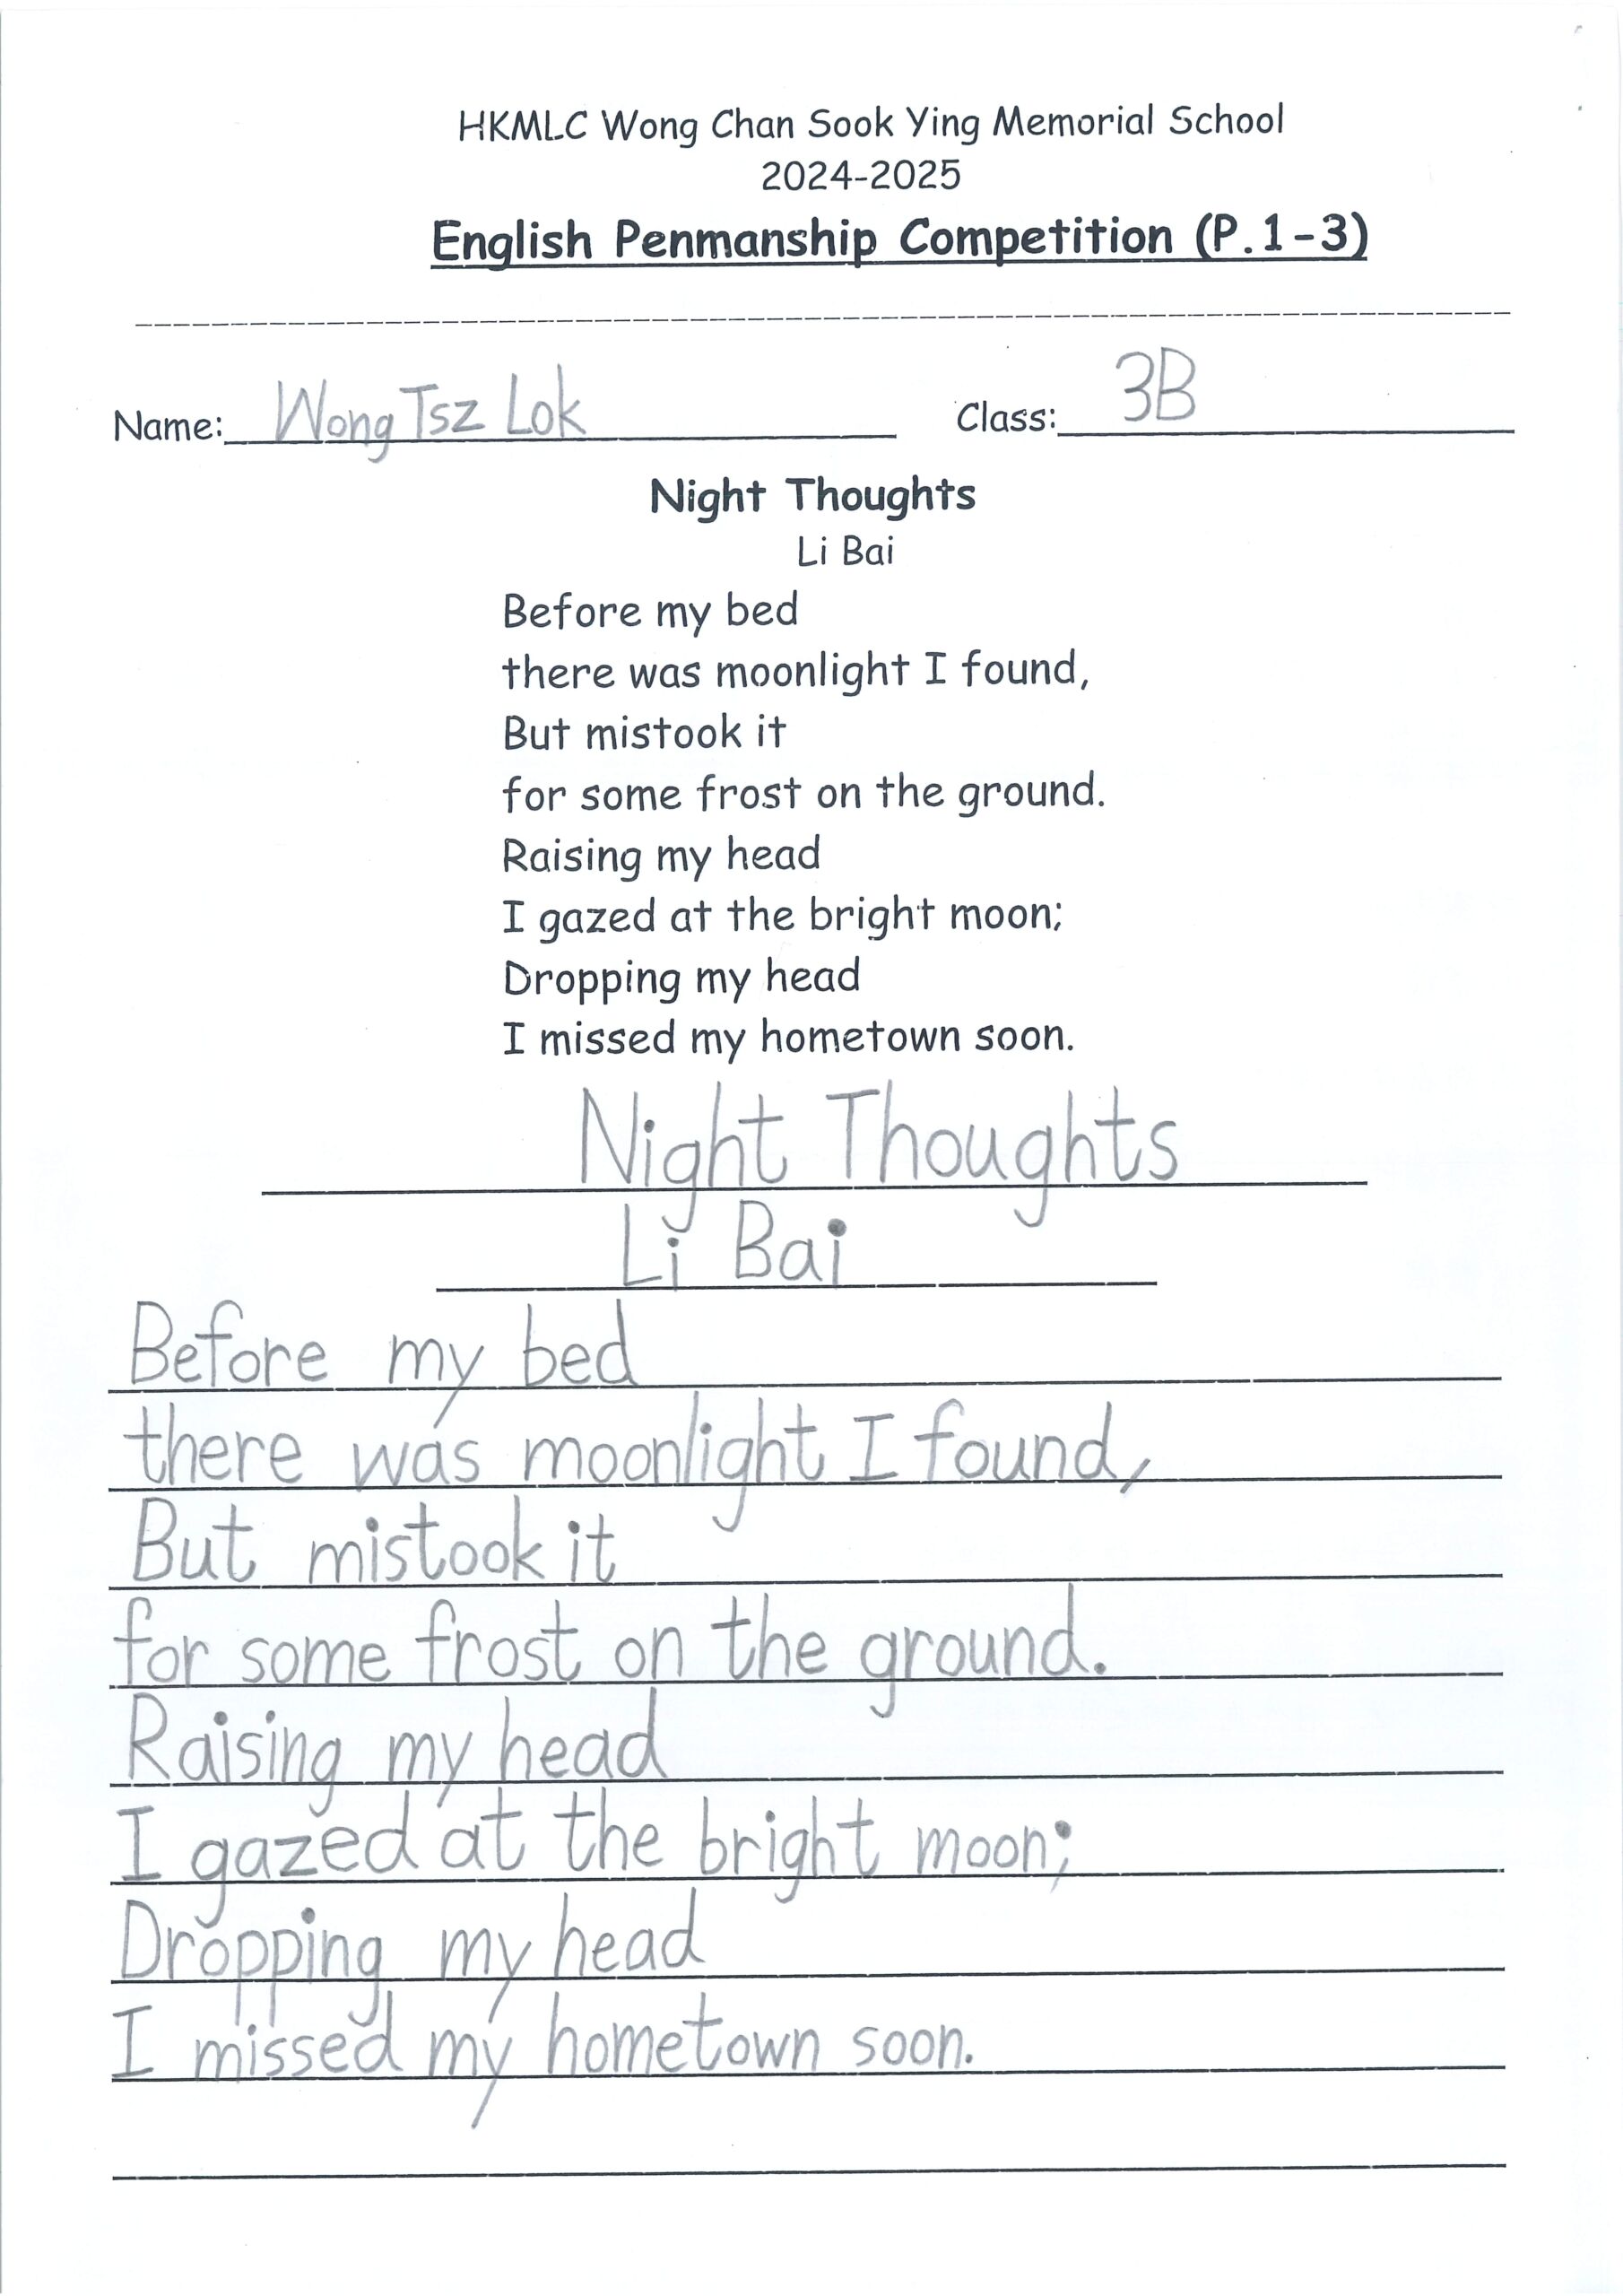 HKMLC Wong Chan Sook Ying Memorial School
2024-2025
English Penmanship Competition (P.1-3)
Name: Wong Tsz Lok Class: 3B
Night Thoughts
Li Bai
Before my bed
there was moonlight I found,
But mistook it
for some frost on the ground.
Raising my head
I gazed at the bright moon;
Dropping my head
I missed my hometown soon.
Night Thoughts
Li Bai
Before my bed
there was moonlight I found,
But mistook it
for some frost on the ground.
Raising my head
I gazed at the bright moon;
Dropping my head
I missed my hometown soon.